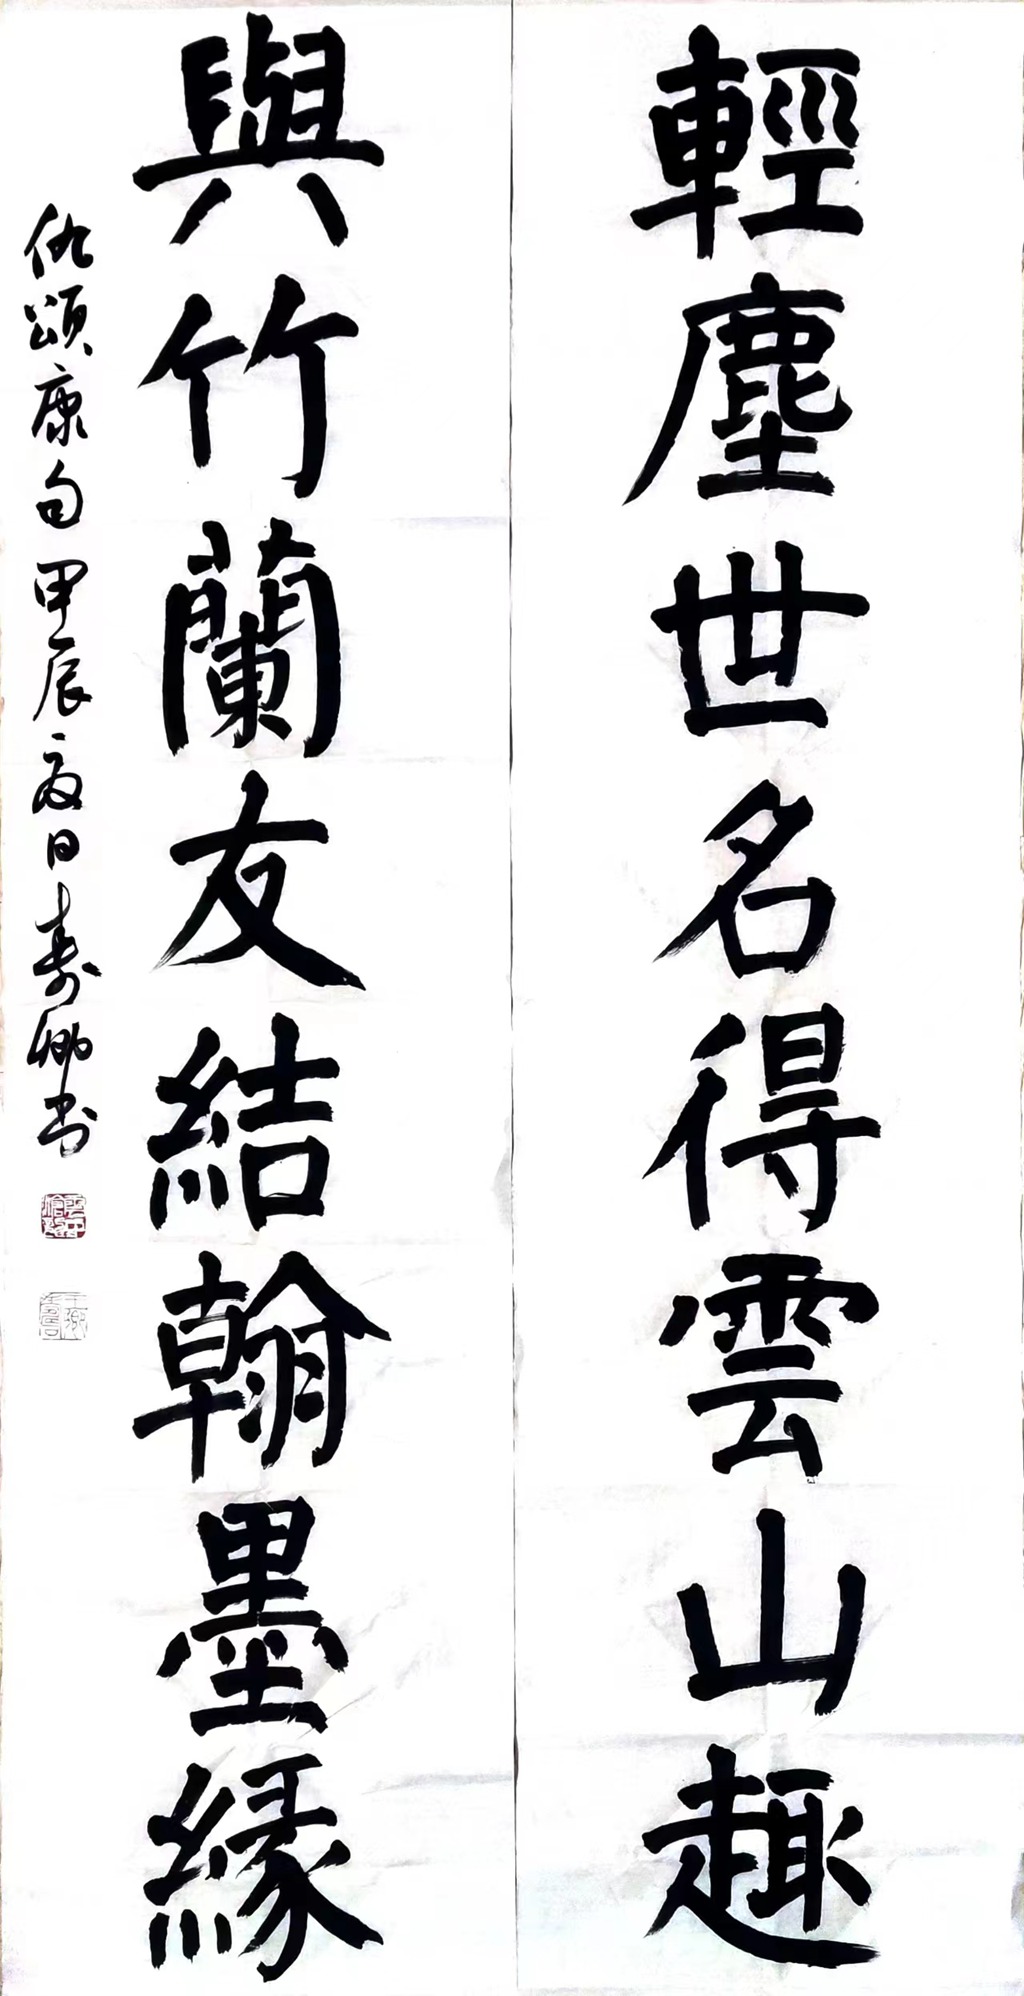 輕塵世名得雲山趣
與竹蘭友結翰墨緣
仇頌康句甲辰夏日壽卿书